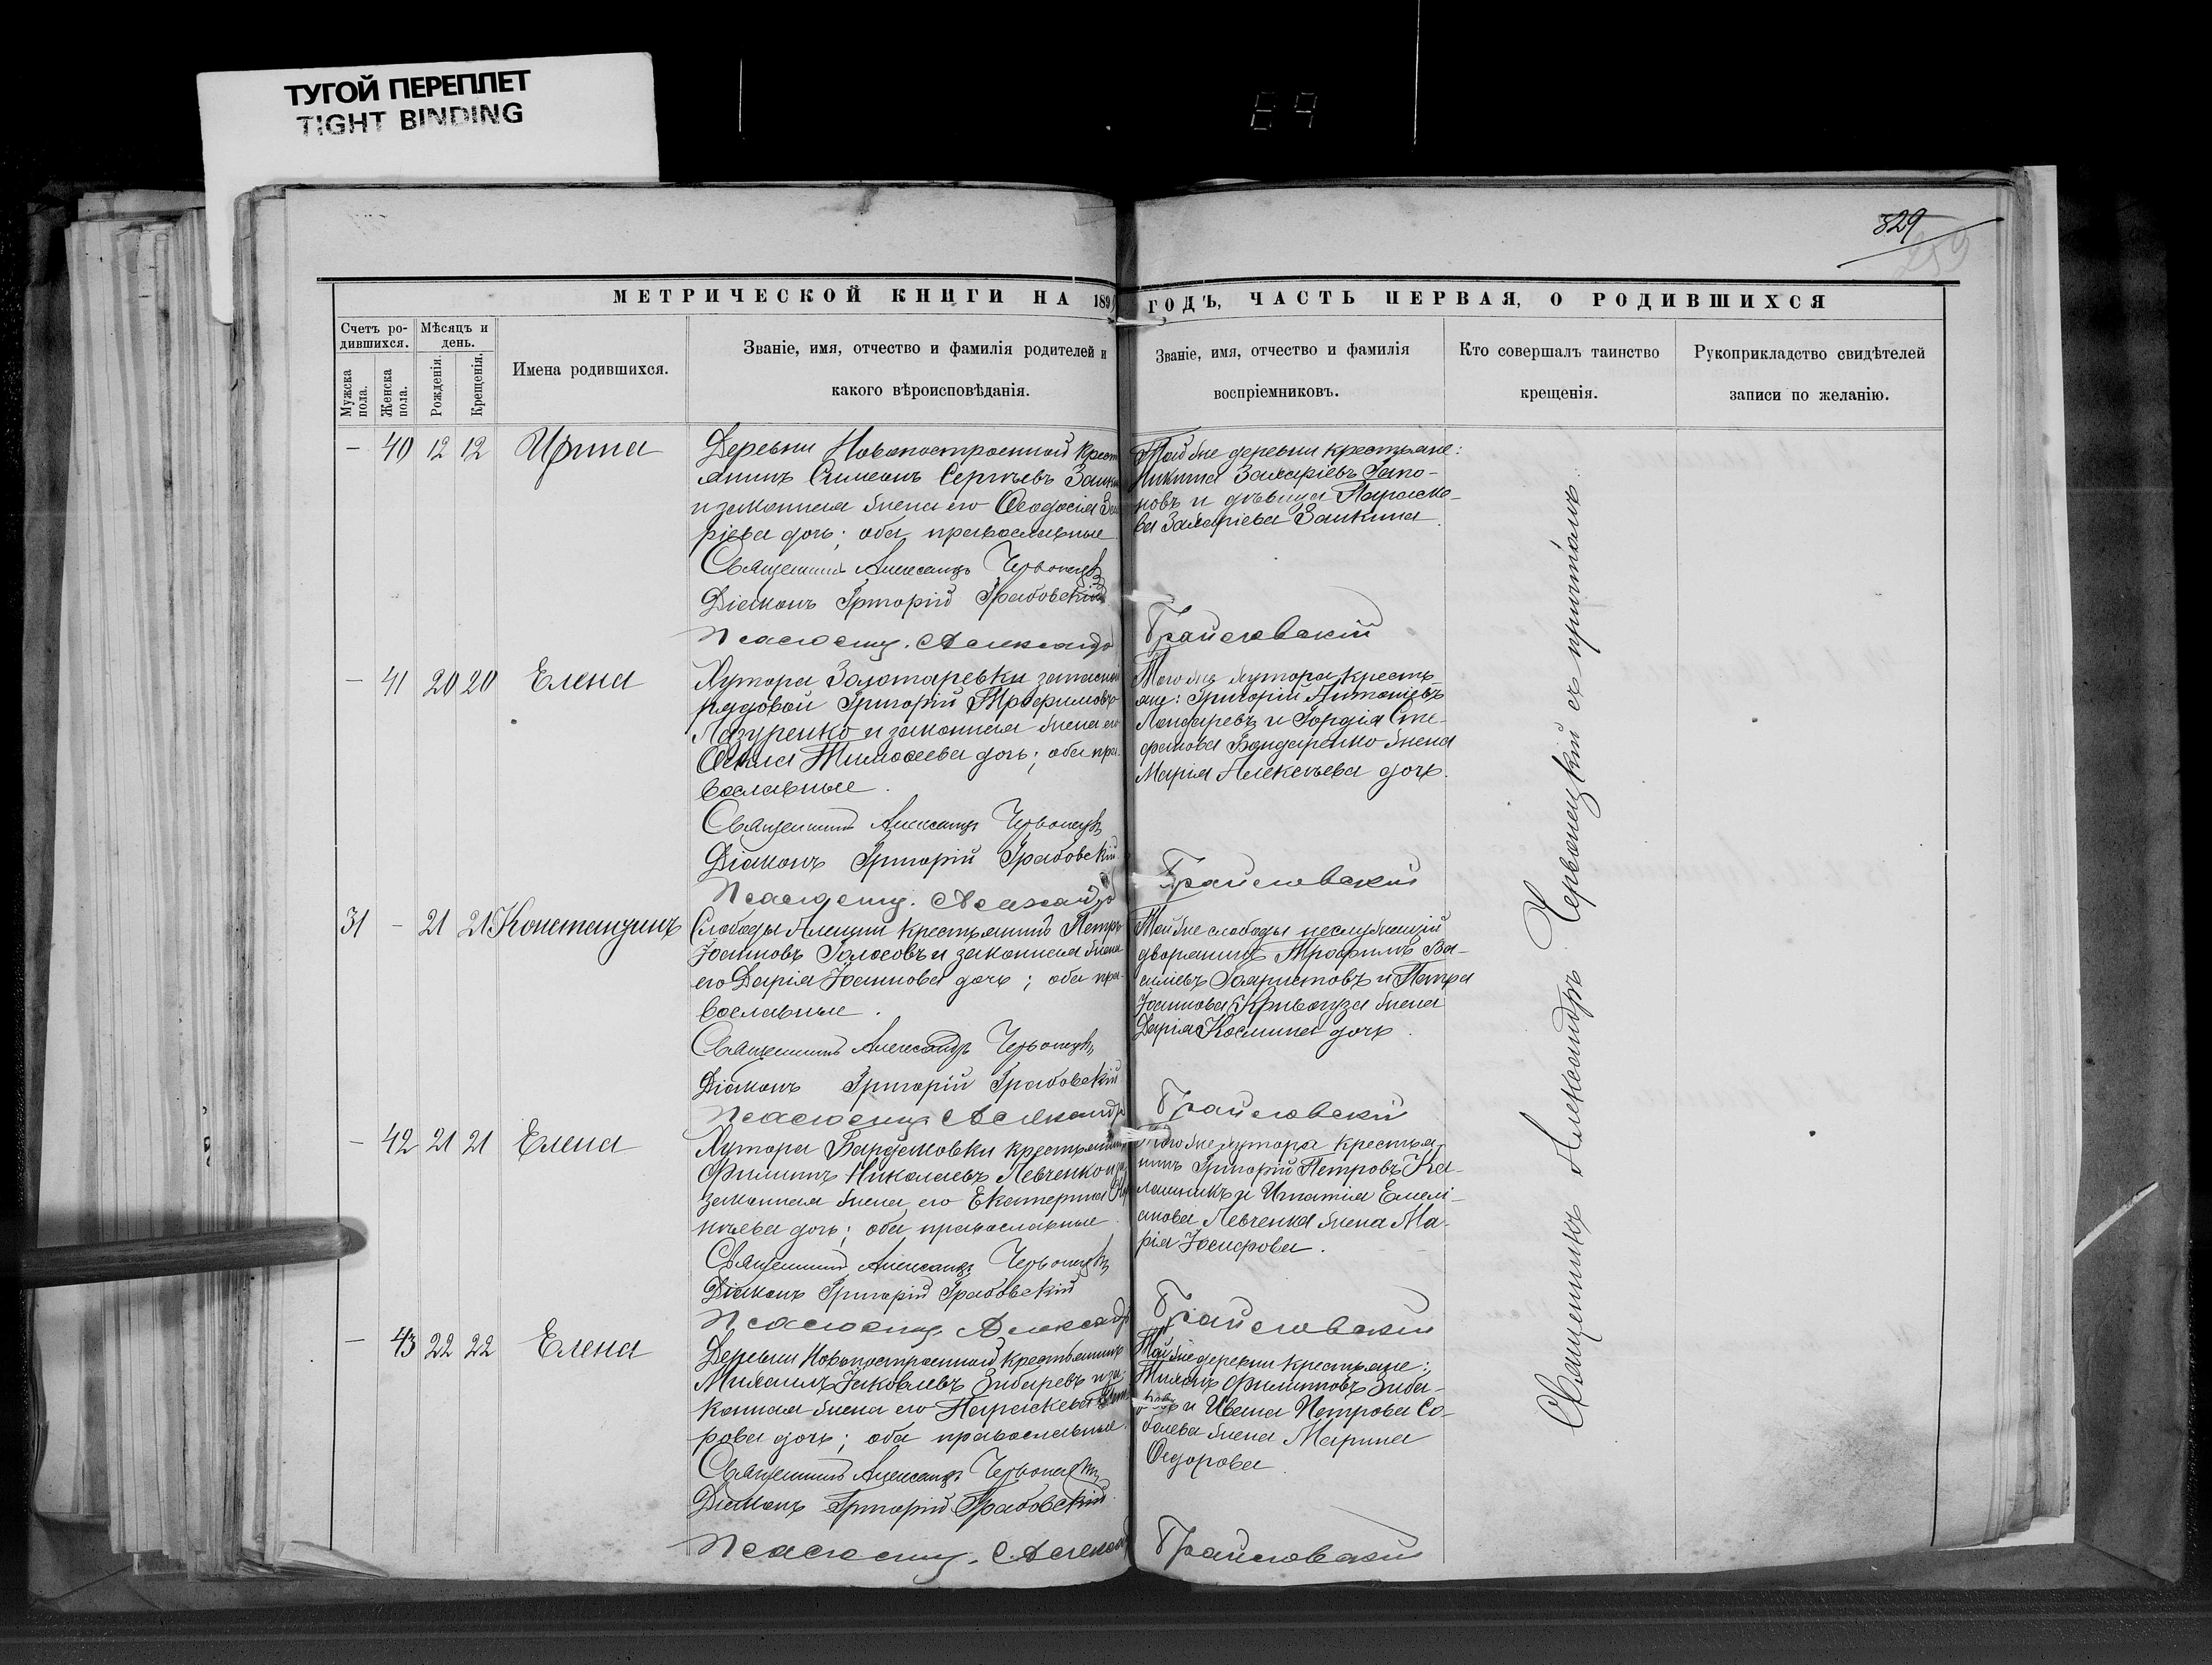 ТУГОЙ ПЕРЕПЛЕТ
TIGHT BINDING
89
329
259
МЕТРИЧЕСКОЙ КНИГИ НА 189
ГОДЪ, ЧАСТЬ ПЕРВАЯ, О РОДИВШИХСЯ
Счетъ ро-
дившихся.
Мѣсяцъ и
день.
Мужска
пола.
Женска
пола.
Рожденія.
Крещенія.
Имена родившихся.
Званіе, имя, отчество и фамилія родителей и
какого вѣроисповѣданія.
Званіе, имя, отчество и фамилія
воспріемниковъ.
Кто совершалъ таинство
крещенія.
Рукоприкладство свидѣтелей
записи по желанію.
— 40 12 12 Ирина
Деревни Новопостроенной крест
янинъ Симеонъ Сергѣевъ
и законная жена его Ѳеодосія
ріева дочь; оба православные
Священникъ Александръ Червонецкій
Діаконъ Григорій Грабовскій
Псаломщ. Александръ
Той же деревни крестьяне:
Никита Захаріевъ Гапо-
новъ и дѣвица Параске-
ва Захаріева Заикина
Грайловскій
— 41 20 20 Елена
Хутора Золотаревки запасный
рядовой Григорій Трофимовъ
Лазуренко и законная жена его
Ѳекла Тимоѳеева дочь; оба пра-
вославные.
Священникъ Александръ Червонецкій
Діаконъ Григорій Грабовскій
Псаломщ. Александръ
Того же хутора кресть-
яне: Григорій Антоніевъ
и Гордія Сте-
фанова Бондаренко жена
Марія Алексѣева дочь.
Грайловскій
31 — 21 21 Константинъ
Слободы крестьянинъ Петръ
Іоанновъ Голосовъ и законная жена
его Дарія Іоаннова дочь; оба пра-
вославные.
Священникъ Александръ Червонецкій
Діаконъ Григорій Грабовскій
Псаломщ. Александръ
Той же слободы неслужащій
дворянинъ Трофимъ Ва-
силіевъ и Петра
Іоаннова Кривогуза жена
Дарія Космина дочь.
Грайловскій
— 42 21 21 Елена
Хутора крестьянинъ
Филиппъ Николаевъ Левченко и
законная жена его Екатерина
дочь; оба православные
Священникъ Александръ Червонецкій
Діаконъ Григорій Грабовскій
Псаломщ. Александръ
Того же хутора крестья-
нинъ Григорій Петровъ Ка-
лашникъ и Игнатія Емелі-
анова Левченка жена Ма-
рія Іосифова.
Грайловскій
— 43 22 22 Елена
Деревни Новопостроенной крестьянинъ
Михаилъ Іаковлевъ Зибаревъ и за-
конная жена его Параскева
рова дочь; оба православные.
Священникъ Александръ Червонецкій
Діаконъ Григорій Грабовскій
Псаломщ. Александръ
Той же деревни крестьяне:
Филипповъ Зиба-
и Ивана Петрова Со-
болева жена Марина
Ѳедорова
Грайловскій
Священникъ Александръ Червонецкій съ причтомъ